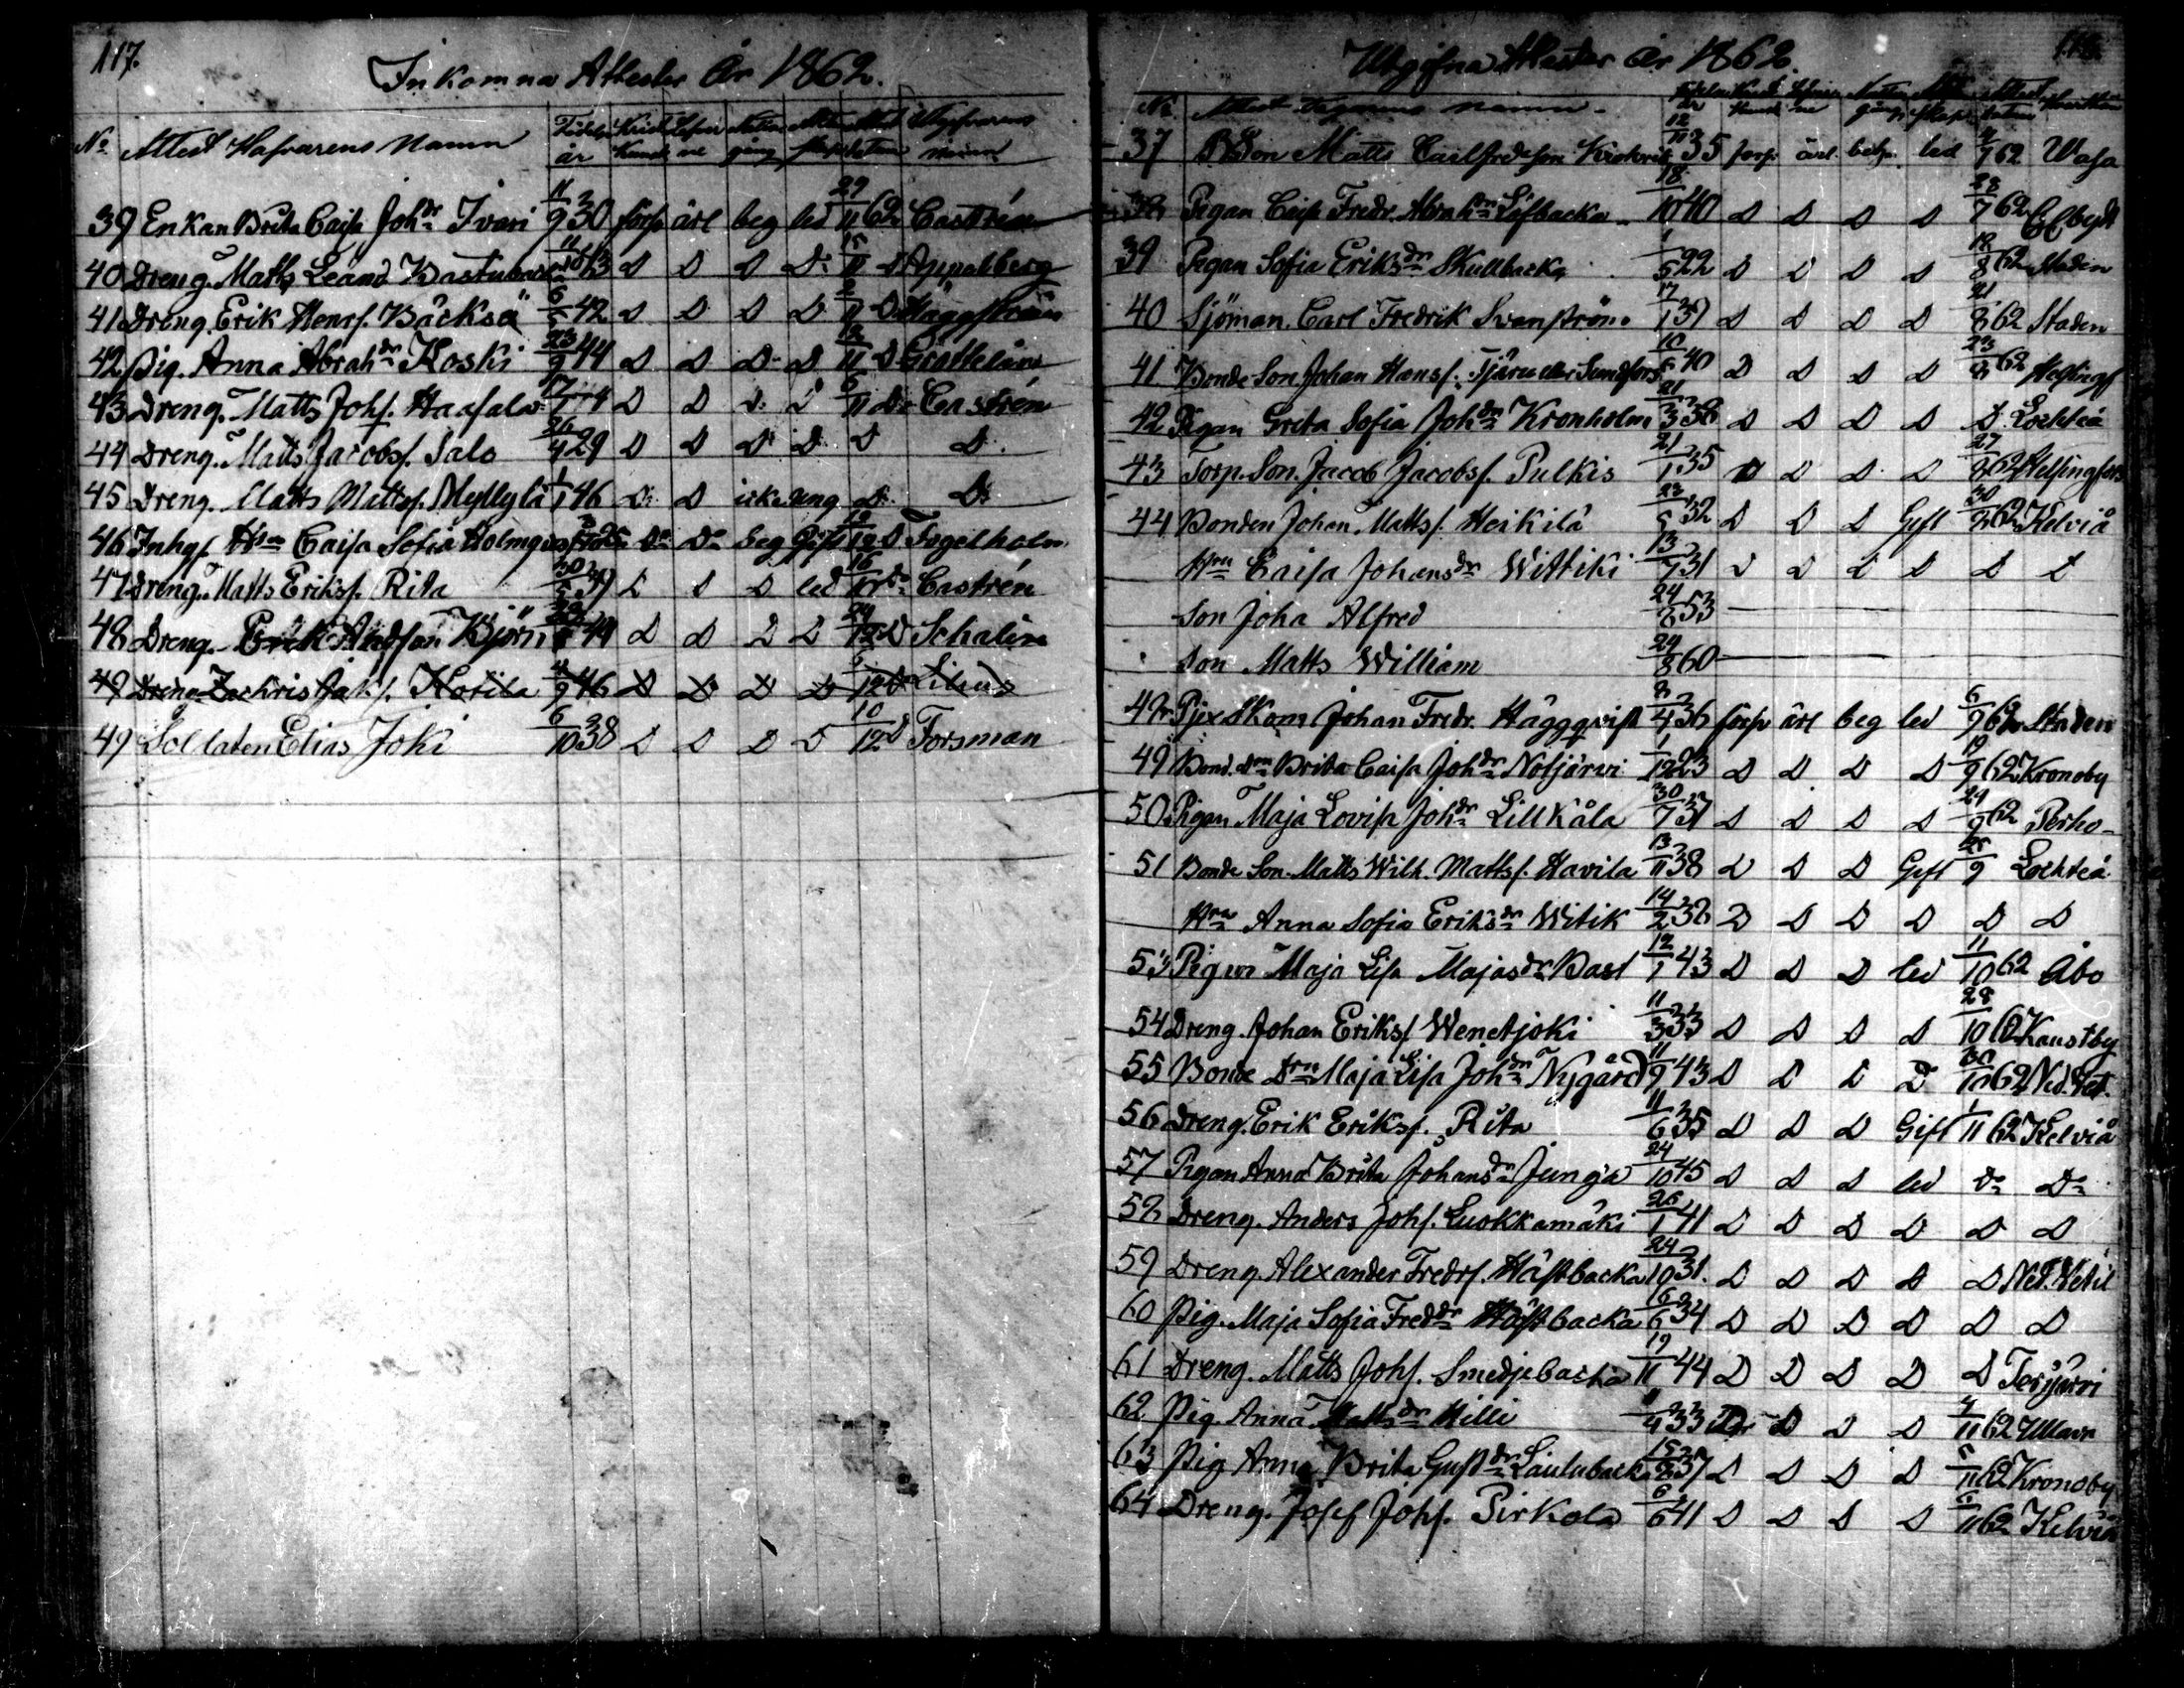 117.
Inkomna Attester År 1862.
No Attest Hafvarens Namn Födelse år Krist Kund Lefver ne Nattv gång Äkten skap Attest datum Utgifvarens namn
39 Enkan Brita Caisa Johdr Ivari 11/9 30 försv ärl beg led 29/11 62 Castrén
40 Dreng. Matts Leand Bastuback 43 D D D D 15/11 D Appelberg
41 Dreng. Erik Henrs. Bäckså 6/5 42 D D D D 2/11 D Häggström
42 Pig. Anna Abrahdr Koski 23/9 44 D D D D 12/11 D
43 Dreng. Matts Johs. Haasala 17/7 44 D D D D 6/11 D Castrén
44 Dreng. Matts Jacobs. Salo 26/4 29 D D D D D D
45 Dreng. Matts Mattss. Myllylä 1/1 46 D D icke ung D D
46 Inhys Hon Caisa Sofia Holmqvist Do Do beg Gift 12 D Fogelholm
47 Dreng. Matts Eriks. Rita 30/5 37 D D D led 16/11 Do Castrén
48 Dreng. Erik Andsson Björn 44 D D D D 24/12 D Schalin
49 Dreng Zachris Jaks. Korila 4/9 46 D D D D 5/12 D Lilius
49 Soldaten Elias Joki 6/10 38 D D D D 10/12 D Forsman
118.
Utgifna Attester år 1862.
No Attest Tagarens namn Födelse år Krist Kund Lefver ne Nattv gång Äkten skap Attest datum
37 B Son Matts Carlfredrson 12/11 35 försv ärl. beh. led 4/7 62 Wasa
38 Pigan Caisa Fredr. Abrahdr Löfbacka 18/10 40 D D D D 28/7 62
39 Pigan Sofia Eriksdr Skullbacka 1/5 22 D D D D 18/8 62 Staden
40 Sjöman. Carl Fredrik Svanström 17/1 37 D D D D 21/8 62 Staden
41 Bonde Son Johan Hanss. Tjäru eller Sundfors 10/5 40 D D D D 23/8 62
42 Pigan Greta Sofia Johdr Kronholm 21/3 38 D D D D D Lochteå
43 Torp. Son. Jacob Jacobs. Pulkis 21/1 35 D D D D 27/8 62 Helsingfors
44 Bonden Johan Matts. Heikilä 23/5 32 D D D Gift 30/8 62 Kelviå
Hru Caisa Johansdr Wittiki 13/7 31 D D D D D D
Son Joha Alfred 24/8 53
Son Matts William 24/8 60
48 Johan Fredr. Häggqvist 2/4 36 försv ärl beg led 6/9 62 Staden
49 Bond. drn Brita Caisa Johdr Notjärvi 1/12 23 D D D D 19/9 62 Kronoby
50 Pigan Maja Lovisa Johdr Lillkåla 30/7 37 D D D D 24/9 62 Perho
51 Bonde Son. Matts Wilh. Matts. Havila 13/11 38 D D D Gift 25/9 Lochteå
Hru Anna Sofia Eriksdr Witik 14/2 38 D D D D D D
53 Pigan Maja Lisa Majasdr Bast 12/1 43 D D D led 11/10 62 Åbo
54 Dreng. Johan Eriks. Wenetjoki 11/3 33 D D D D 28/10 62 Kaustby
55 Bonde Drn Maja Lisa Johdr Nygård 11/9 43 D D D D 30/10 62 Ned. Vet.
56 Dreng. Erik Eriks. Rita 11/6 35 D D D Gift 1/11 62 Kelviå
57 Pigan Anna Brita Johansdr Junga 24/10 45 D D D led Do Do
58 Dreng. Anders Johs. Luokkamäki 26/1 41 D D D D D D
59 Dreng. Alexander Fredrs. Hästbacka 24/10 31 D D D D D Ned. Vetil
60 Pig. Maja Sofia Freddr Hästbacka 16/6 34 D D D D D D
61 Dreng. Matts Johs. Smedjebacka 19/11 44 D D D D D Terjärvi
62 Pig. Anna Mattsdr Hilli 11/4 33 D D D D 4/11 62 Ullava
63 Pig Anna Brita Gustdr Laulubacka 15/8 37 D D D D 5/11 62 Kronoby
64 Dreng. Josef Johs. Pirkola 6/6 41 D D D D 6/11 62 Kelviå